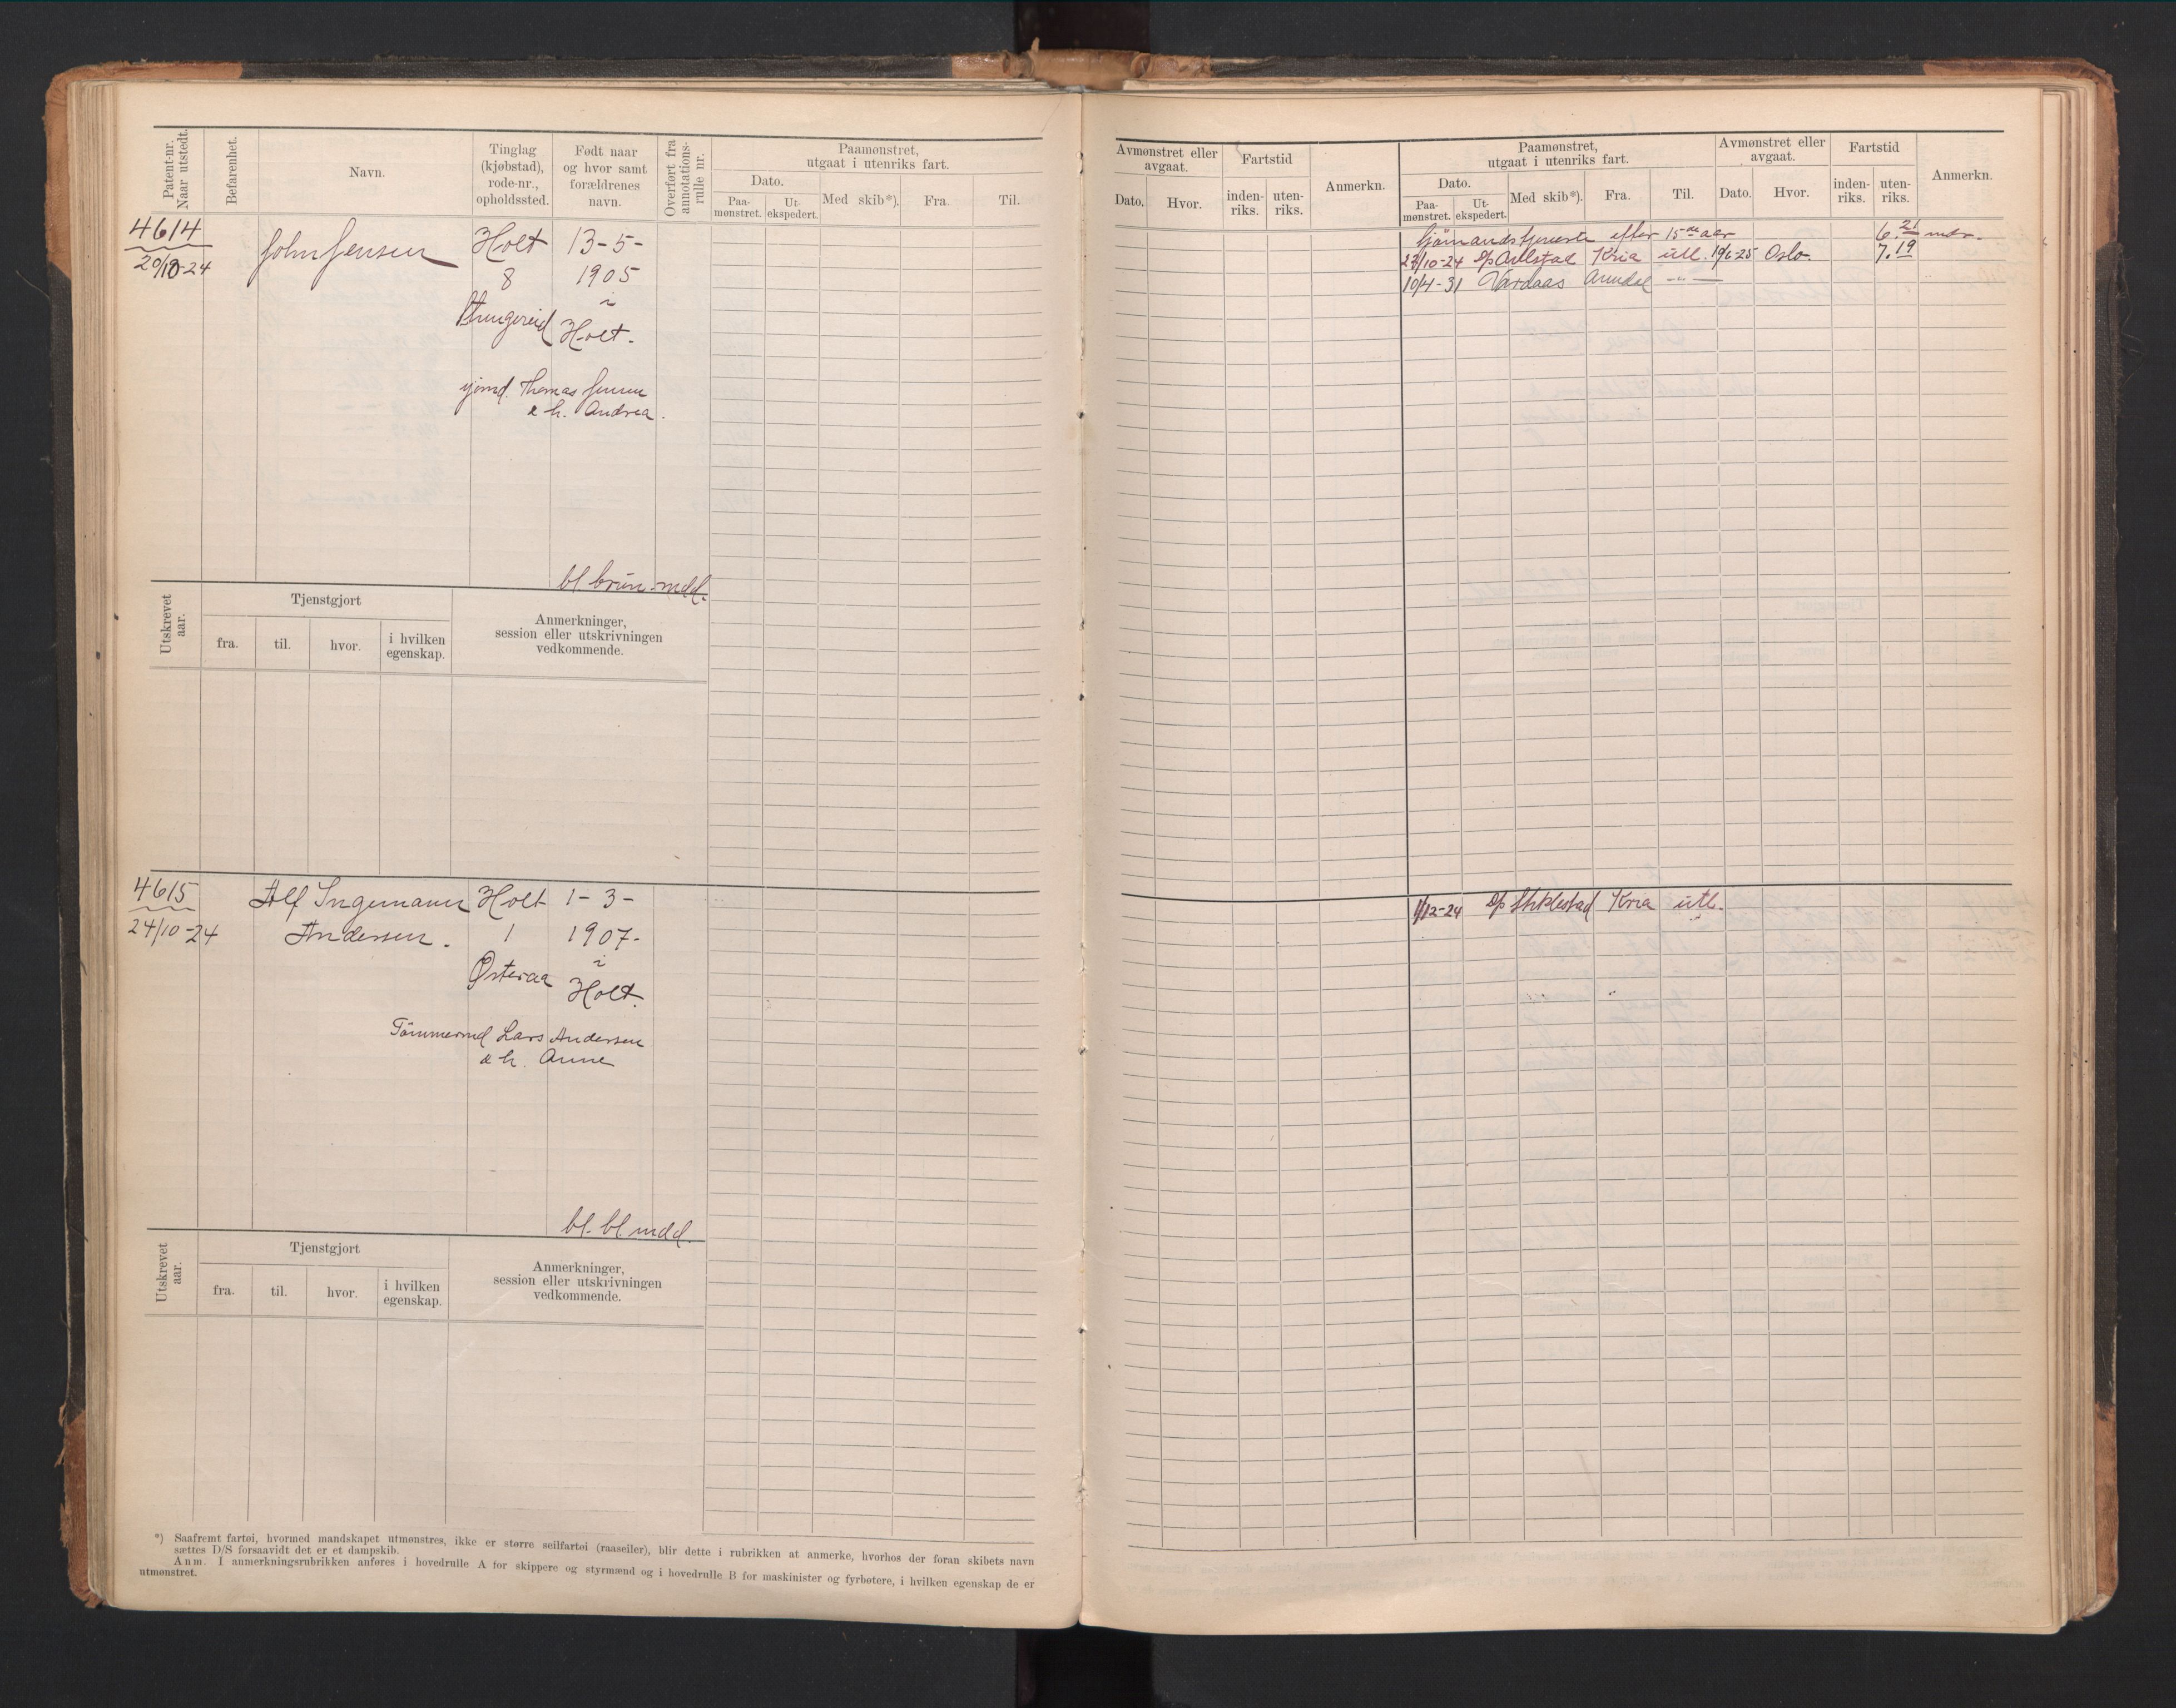 Patent-nr. Naar utstedt.
Befarenhet.
Navn.
Tinglag (kjøbstad), rode-nr., opholdssted.
Født naar og hvor samt forældrenes navn.
Overført fra annotations-rulle nr.
Paamønstret, utgaat i utenriks fart.
Dato.
Paa-mønstret.
Ut-ekspedert.
Med skib*).
Fra.
Til.
4614
20/10-24
John Jensen
Holt
8
13-5-
1905
i
Holt.
Thomas Jensen
& h. Andrea.
bl. brun mdd.
Utskrevet aar.
Tjenstgjort
fra.
til.
hvor.
i hvilken egenskap.
Anmerkninger, session eller utskrivningen vedkommende.
4615
24/10-24
Alf Ingemann
Andersen.
Holt
1
Østeraa
1-3-
1907-
i
Holt.
Tömmermd Lars Andersen
& h. Anne
bl. bl mdd.
Utskrevet aar.
Tjenstgjort
fra.
til.
hvor.
i hvilken egenskap.
Anmerkninger, session eller utskrivningen vedkommende.
*) Saafremt fartøi, hvormed mandskapet utmønstres, ikke er større seilfartøi (raaseiler), blir dette i rubrikken at anmerke, hvorhos der foran skibets navn
sættes D/S forsaavidt det er et dampskib.
Anm. I anmerkningsrubrikken anføres i hovedrulle A for skippere og styrmænd og i hovedrulle B for maskinister og fyrbøtere, i hvilken egenskap de er
utmønstret.
Avmønstret eller avgaat.
Dato.
Hvor.
Fartstid
inden-riks.
uten-riks.
Anmerkn.
Paamønstret, utgaat i utenriks fart.
Dato.
Paa-mønstret.
Ut-ekspedert.
Med skib*).
Fra.
Til.
Avmønstret eller avgaat.
Dato.
Hvor.
Fartstid
inden-riks.
uten-riks.
Anmerkn.
Sjömandstjeneste efter 15de aar 6.21 mdr.
/10-24 Kria utl. 19/6 25 Oslo. 7.19
10/4-31 Vardaas Arendal -"-
1/12-24 D/S Stiklestad Kria utl.